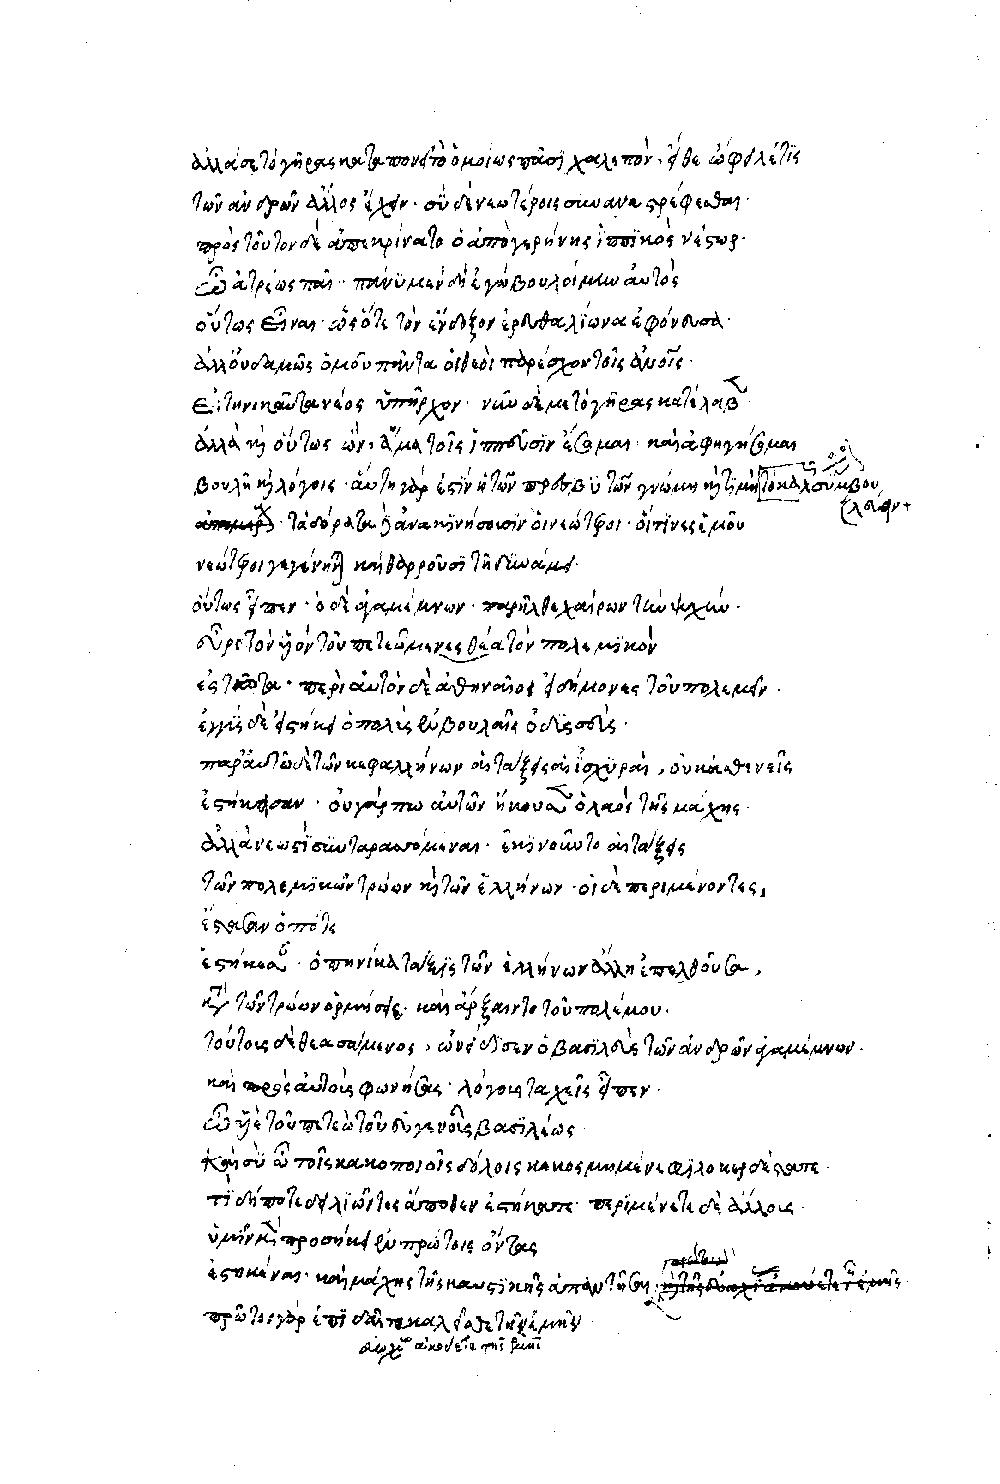 ἀλλά σε τὸ γῆρας καταπονεῖ τὸ ὁμοίως πᾶσι χαλεπόν. εἴθε ὤφελέ τις
τῶν ἀνδρῶν ἄλλος ἔχειν. σὺ δὲ νεωτέροις συναναστρέφεσθαι.
πρὸς τοῦτον δὲ ἀπεκρίνατο ὁ ἀπὸ γερήνης ἱππικὸς νέστωρ.
Ὦ ἀτρέως παῖ. πάνυ μὲν δὴ ἐγὼ βουλοίμην αὐτὸς
οὕτως εἶναι. ὡς ὅτε τὸν ἔνδοξον ἐρευθαλίωνα ἐφόνευσα.
ἀλλ' οὐδαμῶς ὁμοῦ πάντα οἱ θεοὶ παρέσχον τοῖς ἀνοῖς.
Εἰ τηνικαῦτα νέος ὑπῆρχον. νῦν δέ με τὸ γῆρας κατέλαβε.
ἀλλὰ καὶ οὕτως ὢν, ἅμα τοῖς ἱππεῦσιν ἔσομαι. καὶ ἀφηγήσομαι
βουλῇ καὶ λόγοις. αὕτη γάρ ἐστιν ἡ τῶν πρεσβυτῶν γνώμη καὶ τιμὴ τὸ καλ συμβου
λεύειν
τὰ δόρατα δὲ ἀνακινήσουσιν οἱ νεώτεροι. οἵτινες ἐμοῦ
νεώτεροι γεγένηνται καὶ θαρροῦσι τῇ δυνάμει.
οὕτως εἶπεν. ὁ δὲ ἀγαμέμνων παρῆλθε χαίρων τὴν ψυχήν.
εὗρε τὸν υἱὸν τοῦ πετεῶ μενεσθέα τὸν πολεμικὸν
ἑστῶτα. περὶ αὐτὸν δὲ ἀθηναῖοι εἰδήμονες τοῦ πολεμεῖν.
ἐγγὺς δὲ εἱστήκει ὁ πολὺς ἐν βουλαῖς ὀδυσσεύς.
παρ' αὐτῷ δὲ τῶν κεφαλλήνων αἱ τάξεις αἱ ἰσχυραὶ, οὐκ ἀσθενεῖς
ἑστήκεισαν. οὐ γάρ πω αὐτῶν ἤκουεν ὁ λαὸς τῆς μάχης.
ἀλλὰ νεωστὶ συνταρασσόμεναι. ἐκινοῦντο αἱ τάξεις
τῶν πολεμικῶν τρώων καὶ τῶν ἑλλήνων. οἱ δὲ περιμένοντες,
ἔστασαν ὁπότε
ἑστήκεσαν. ὁπηνίκα τάξις τῶν ἑλλήνων ἄλλη ἐπελθοῦσα,
κατὰ τῶν τρώων ὁρμήσειε. καὶ ἄρξαιντο τοῦ πολέμου.
τούτους δὲ θεασάμενος, ὠνείδισεν ὁ βασιλεὺς τῶν ἀνδρῶν ἀγαμέμνων.
καὶ πρὸς αὐτοὺς φωνήσας. λόγους ταχεῖς εἶπεν.
Ὦ υἱὲ τοῦ πετεῶ τοῦ εὐγενοῦς βασιλέως.
Καὶ σὺ ὦ τοῖς κακοποιοῖς δόλοις κεκοσμημένε φιλοκερδέστατε.
τί δήποτε δειλιῶντες ἄποθεν ἑστήκατε. περιμένετε δὲ ἄλλους.
ὑμῖν μὲν προσήκει ἐν πρώτοις ὄντας
ἑστηκέναι. καὶ μάχης τῆς καυστικῆς ἀπαντῆσαι.
πρῶτοι γὰρ ἐπὶ δαῖτα καλεῖσθε τὴν ἐμήν
εὐωχίας ἀκούετε τῆς ἐμῆς